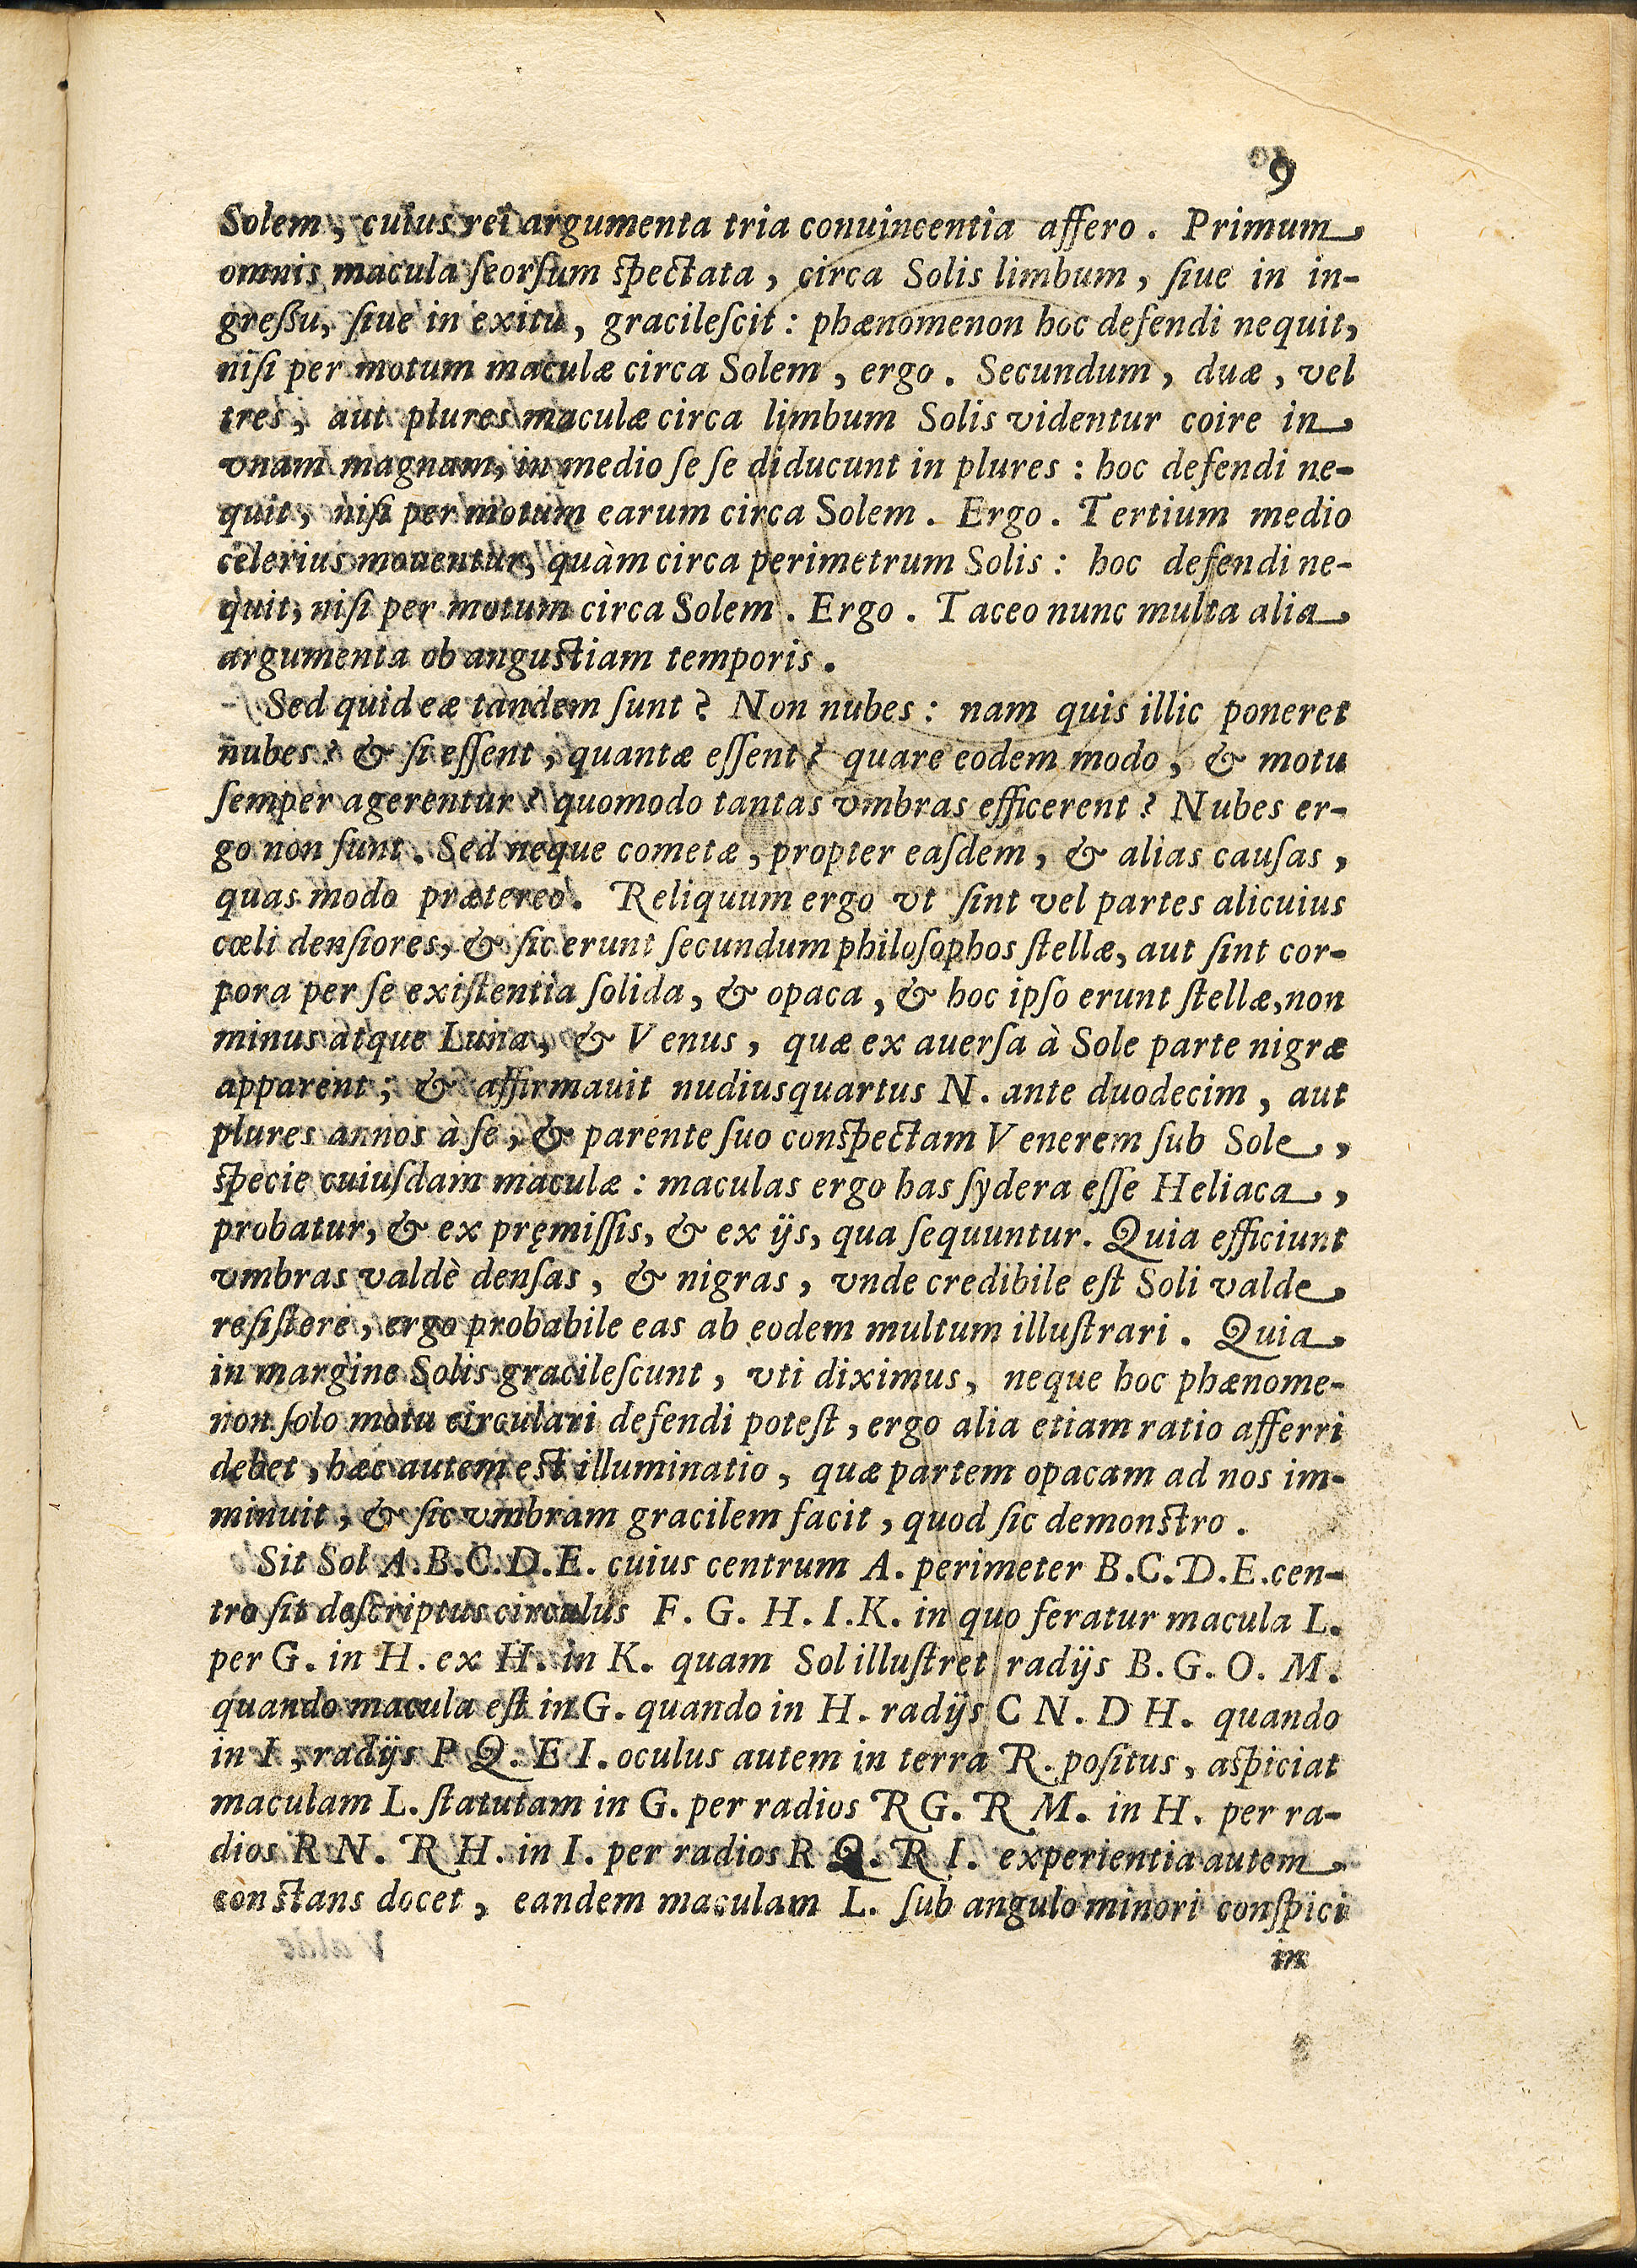 9
Solem, cuius rei argumenta tria conuincentia affero. Primum
omnis macula ſeorſum ſpectata, circa Solis limbum, ſiue in in-
greßu, ſiue in exitu, gracileſcit: phænomenon hoc defendi nequit,
niſi per motum maculæ circa Solem, ergo. Secundum, duæ, vel
tres, aut plures maculæ circa limbum Solis videntur coire in
vnam magnam, in medio ſe ſe diducunt in plures: hoc defendi ne-
quit, niſi per motum earum circa Solem. Ergo. Tertium medio
celerius mouentur, quàm circa perimetrum Solis: hoc defendi ne-
quit, niſi per motum circa Solem. Ergo. Taceo nunc multa alia
argumenta ob anguſtiam temporis.
Sed quid eæ tandem ſunt? Non nubes: nam quis illic poneret
nubes? & ſi eſſent, quantæ eſſent? quare eodem modo, & motu
ſemper agerentur? quomodo tantas vmbras efficerent? Nubes er-
go non ſunt. Sed neque cometæ, propter eaſdem, & alias cauſas,
quas modo prætereo. Reliquum ergo vt ſint vel partes alicuius
cœli denſiores, & ſic erunt ſecundum philoſophos ſtellæ, aut ſint cor-
pora per ſe exiſtentia ſolida, & opaca, & hoc ipſo erunt ſtellæ, non
minus atque Luna, & Venus, quæ ex auerſa à Sole parte nigræ
apparent; & affirmauit nudiusquartus N. ante duodecim, aut
plures annos à ſe, & parente ſuo conſpectam Venerem ſub Sole,
ſpecie cuiuſdam maculæ: maculas ergo has ſydera eſſe Heliaca,
probatur, & ex pręmiſſis, & ex ijs, qua ſequuntur. Quia efficiunt
vmbras valdè denſas, & nigras, vnde credibile eſt Soli valde
reſiſtere, ergo probabile eas ab eodem multum illuſtrari. Quia
in margine Solis gracileſcunt, vti diximus, neque hoc phænome-
non ſolo motu circulari defendi poteſt, ergo alia etiam ratio afferri
debet, hæc autem eſt illuminatio, quæ partem opacam ad nos im-
minuit, & ſic vmbram gracilem facit, quod ſic demonſtro.
Sit Sol A.B.C.D.E. cuius centrum A. perimeter B.C.D.E. cen-
tro ſit deſcriptus circulus F. G. H. I. K. in quo feratur macula L.
per G. in H. ex H. in K. quam Sol illuſtret radijs B. G. O. M.
quando macula eſt in G. quando in H. radijs C N. D H. quando
in I, radijs P Q. E I. oculus autem in terra R. poſitus, aſpiciat
maculam L. ſtatutam in G. per radios R G. R M. in H. per ra-
dios R N. R H. in I. per radios R Q. R I. experientia autem
conſtans docet, eandem maculam L. ſub angulo minori conſpici
in